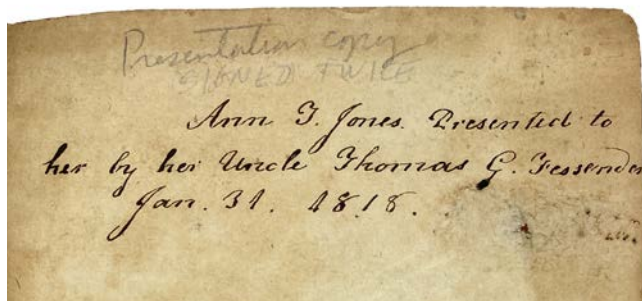 Presentation copy
SIGNED TWICE
Ann T. Jones. Presented to
her by her Uncle Thomas G. Fessenden
Jan. 31. 1818.